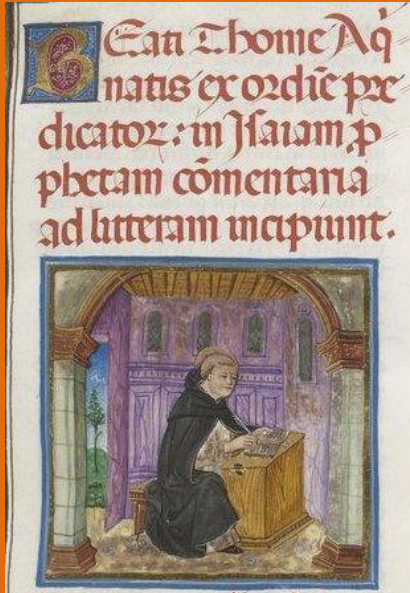 Beati Thome Aq̇
natis ex ordīe pre
dicatoꝝ: in Isaiam ꝓ
phetam cōmentaria
ad litteram incipiunt.